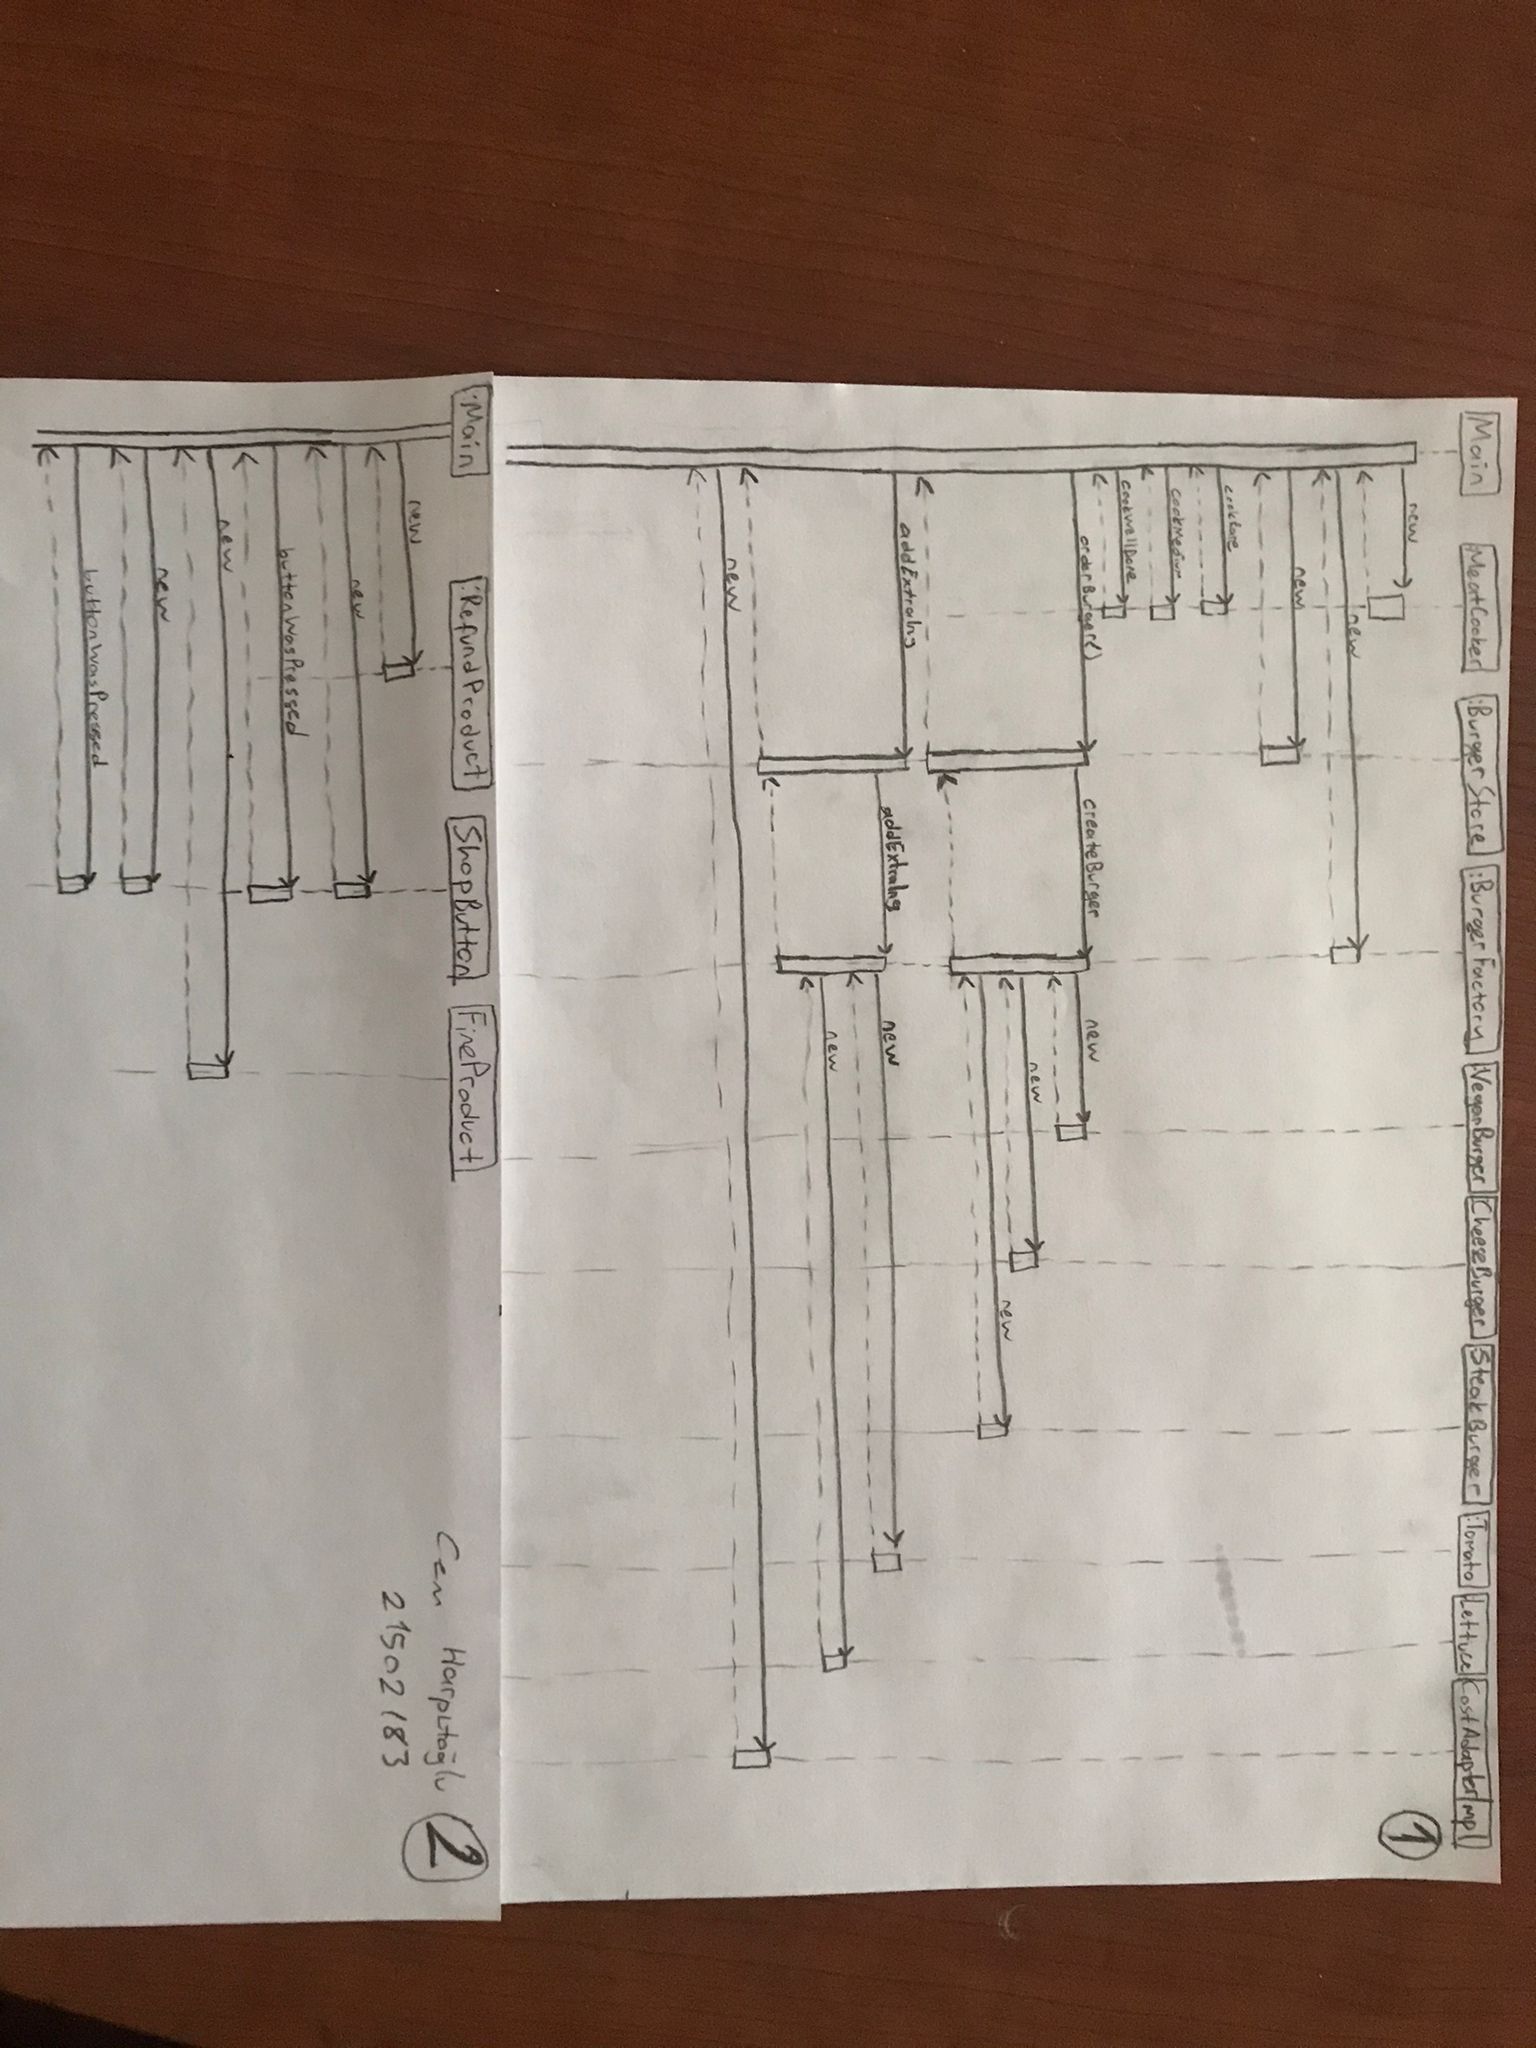 Main :MeatCooker :BurgerStore :BurgerFactory VeganBurger CheeseBurger SteakBurger :Tomato Lettuce CostAdapterImpl
1
new
new
new
cookRare
cookMedium
cookWellDone
orderBurger() createBurger new
new
new
addExtraIng addExtraIng new
new
new
:Main :RefundProduct ShopButton FineProduct
2
new
new
buttonWasPressed
new
new
buttonWasPressed
Cem Harputoğlu
21502183